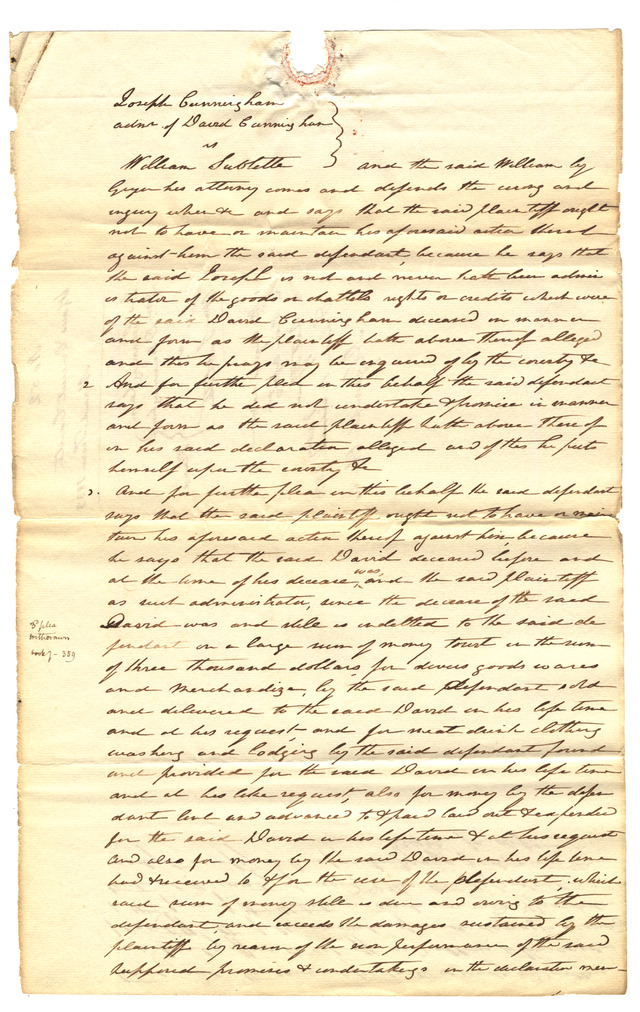 Joseph Cunningham
admr of David Cunningham
vs
William Sublette and the said William by
Geyer his attorney comes and defends the wrong and
injury when &c and says that the said plaintiff ought
not to have or maintain his aforesaid action thereof
against him the said defendant, because he says that
the said Joseph is not and never hath been admin
istrator of the goods or chattels rights or credits which were
of the said David Cunningham deceased in manner
and form as the plaintiff hath above thereof alleged
and this he prays may be enquired of by the country &c
2 And for further plea in this behalf the said defendant
says that he did not undertake & promise in manner
and form as the said plaintiff hath above thereof
in his said declaration alleged and of this he puts
himself upon the country &c
3. And for further plea in this behalf the said defendant
says that the said plaintiff ought not to have or main
tain his aforesaid action thereof against him, because
he says that the said David deceased before and
at the time of his decease, was and the said plaintiff
as such administrator, since the decease of the said
David was and still is indebted to the said de
fendant in a large sum of money to wit in the sum
of three thousand dollars, for divers goods wares
and merchandize, by the said Defendant sold
and delivered to the said David in his life time
and at his request and for meat drink clothing
washing and lodging by the said defendant found
and provided for the said David in his life time
and at his like request, also for money by the defen
dant lent and advanced to & paid laid out & expended
for the said David in his life time & at his request
and also for money by the said David in his life time
had & received to & for the use of the Defendant, which
said sum of money still is due and owing to the
defendant, and exceeds the damages sustained by the
plaintiff by reason of the non performance of the said
supposed promises & undertakings in the declaration men-
3d plea
withdrawn
book 7 - 389